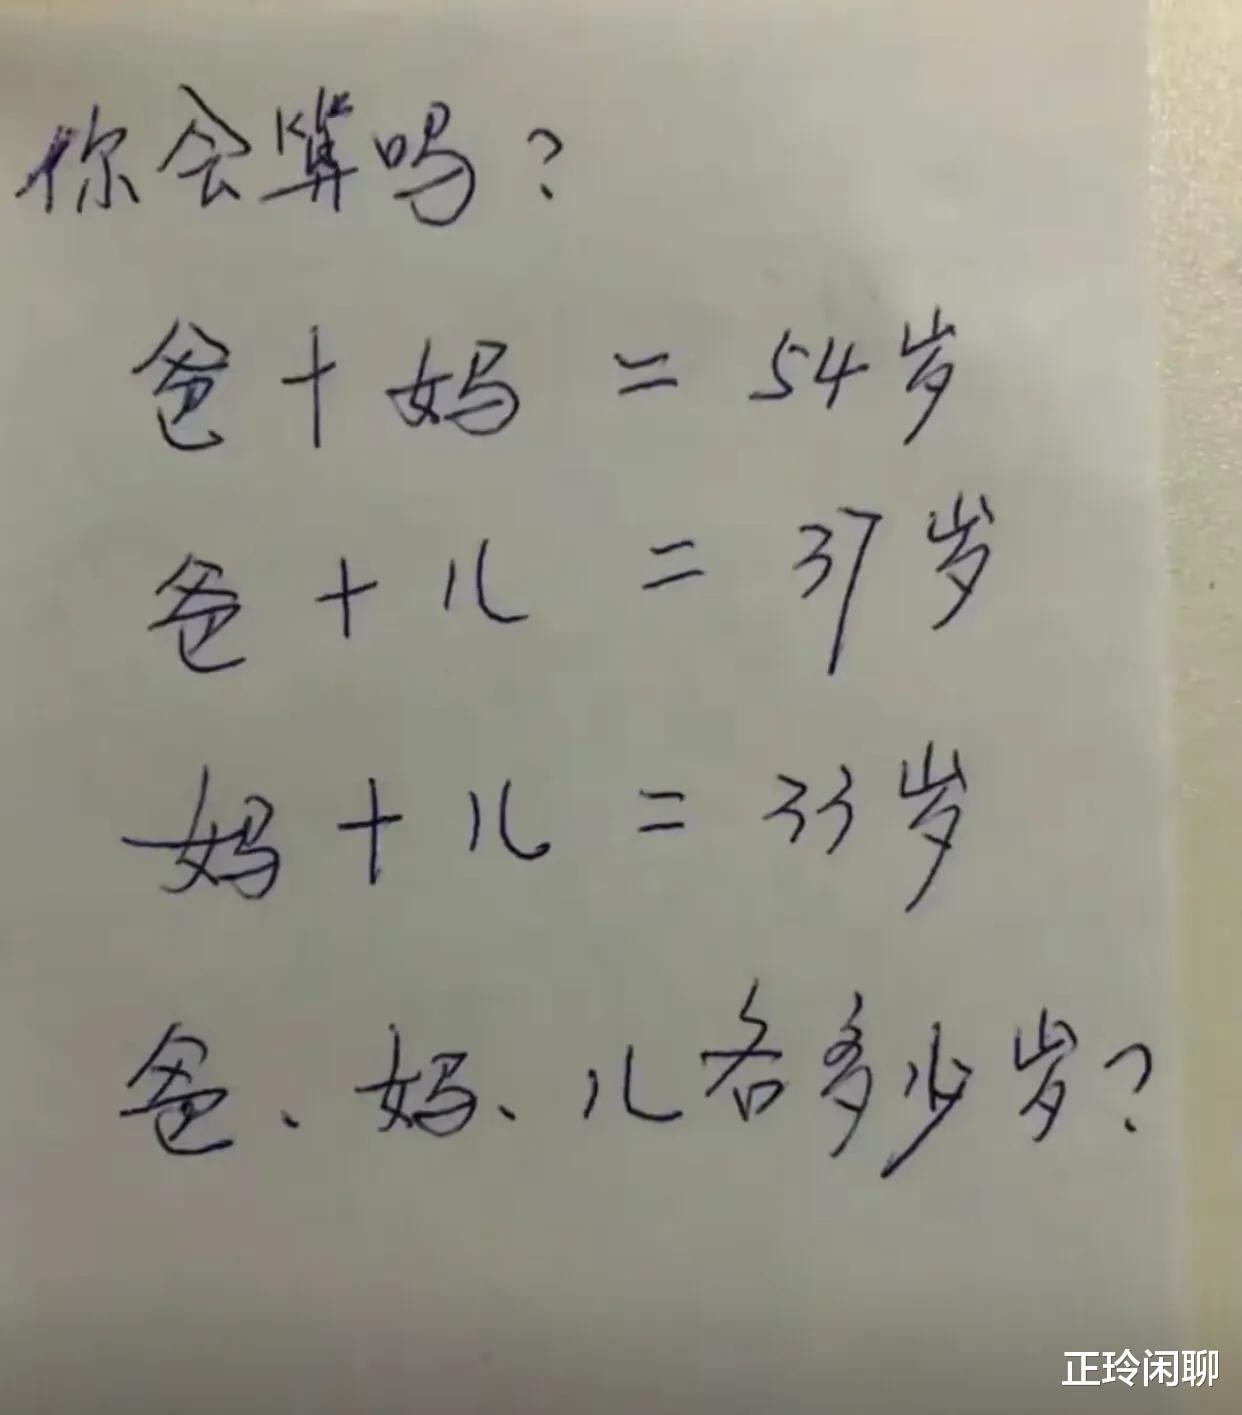 你会算吗？
爸＋妈＝54岁
爸＋儿＝37岁
妈＋儿＝33岁
爸、妈、儿各多少岁？
正玲闲聊